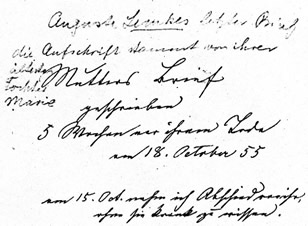 Auguste Lemkes letzter Brief
die Aufschrift stammt von ihrer
ältesten
Tochter
Marie
Mutters Brief
geschrieben
5 Wochen vor ihrem Tode
am 18. October 55
am 15. Oct. nahm ich Abschied von ihr,
ohne sie krank zu wissen.